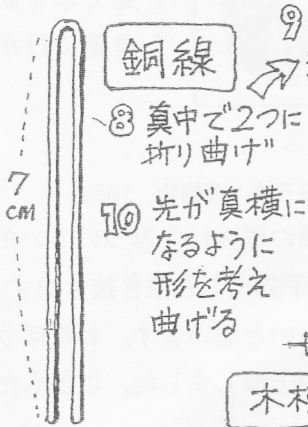 銅線
⑨
⑧ 真中で2つに
折り曲げ
7
CM
⑩ 先が真横に
なるように
形を考え
曲げる
木